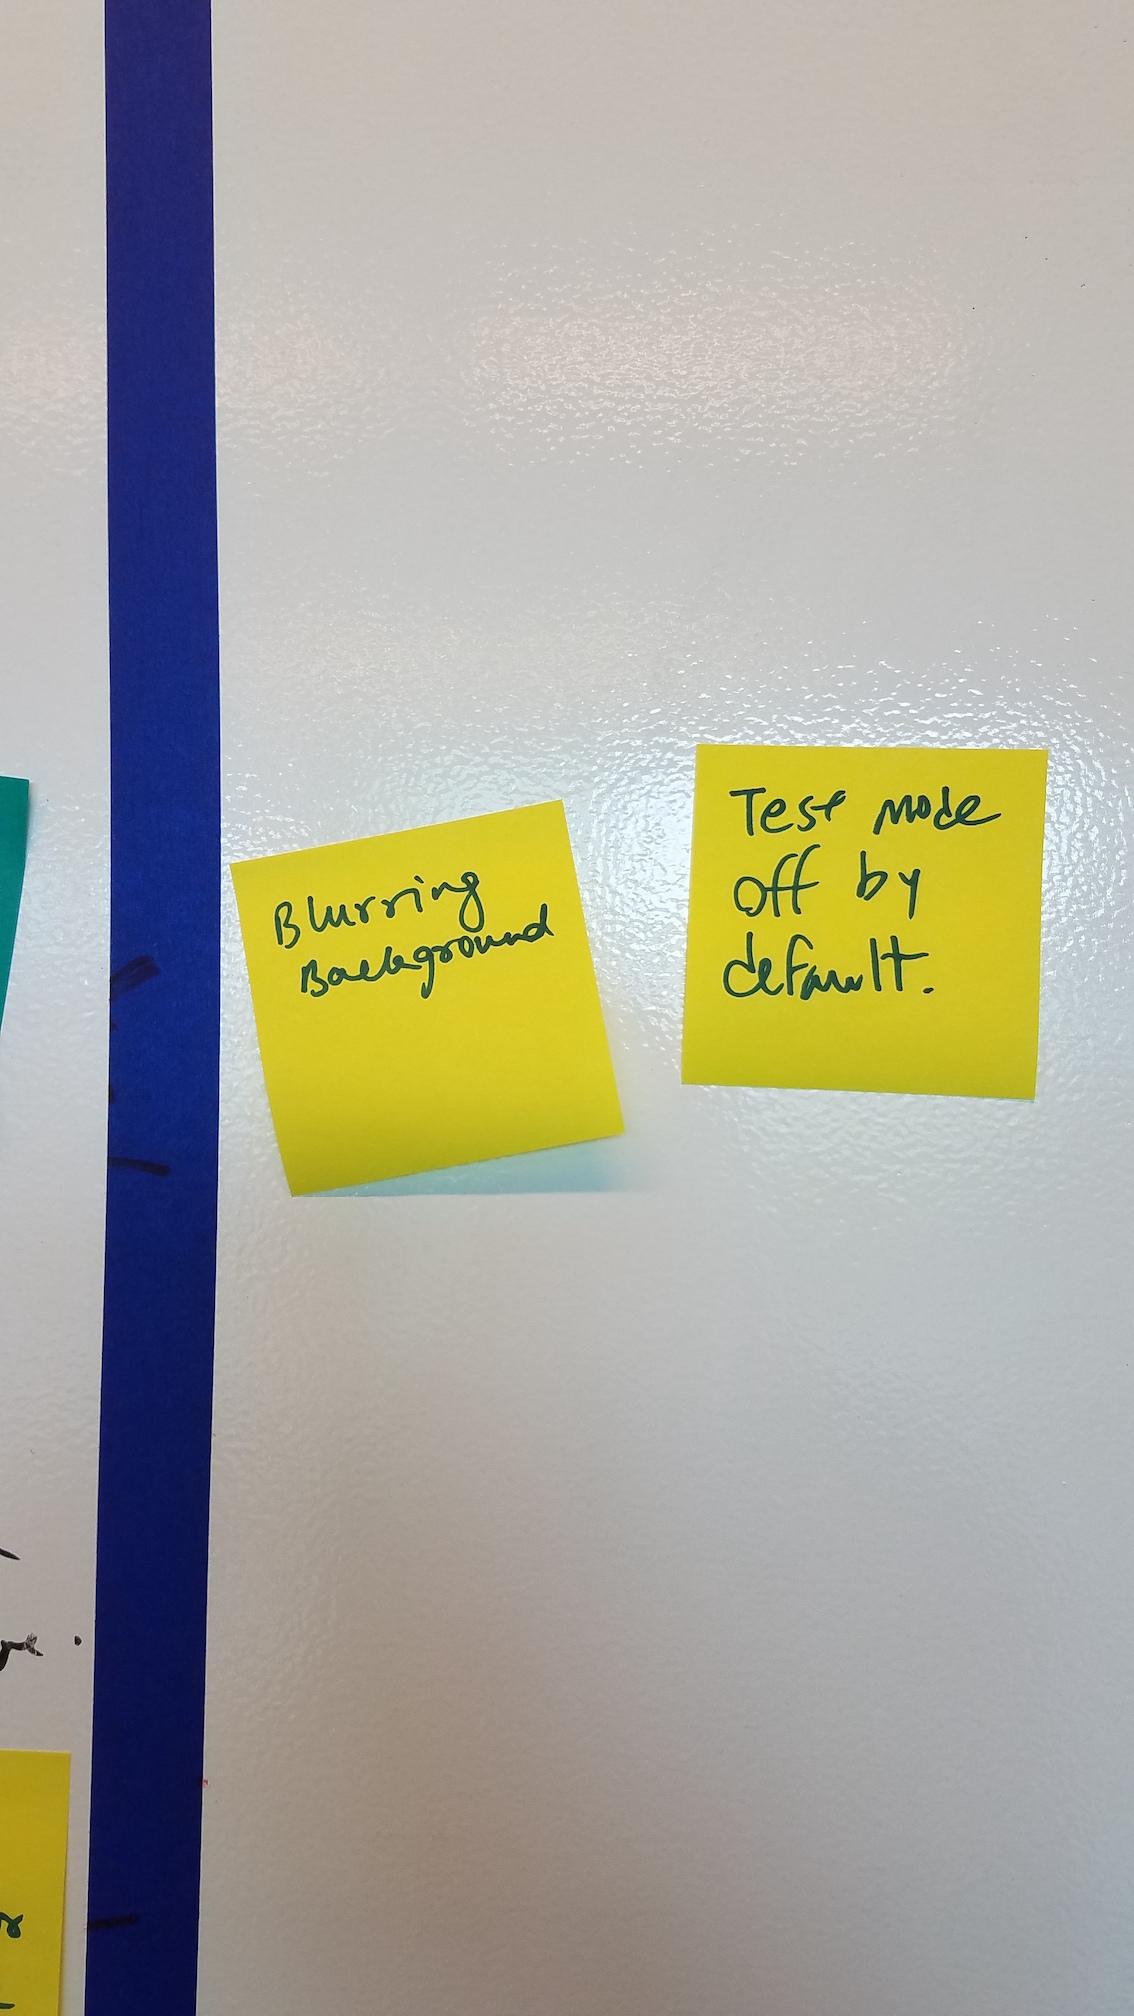 Blurring
Background
Test mode
off by
default.